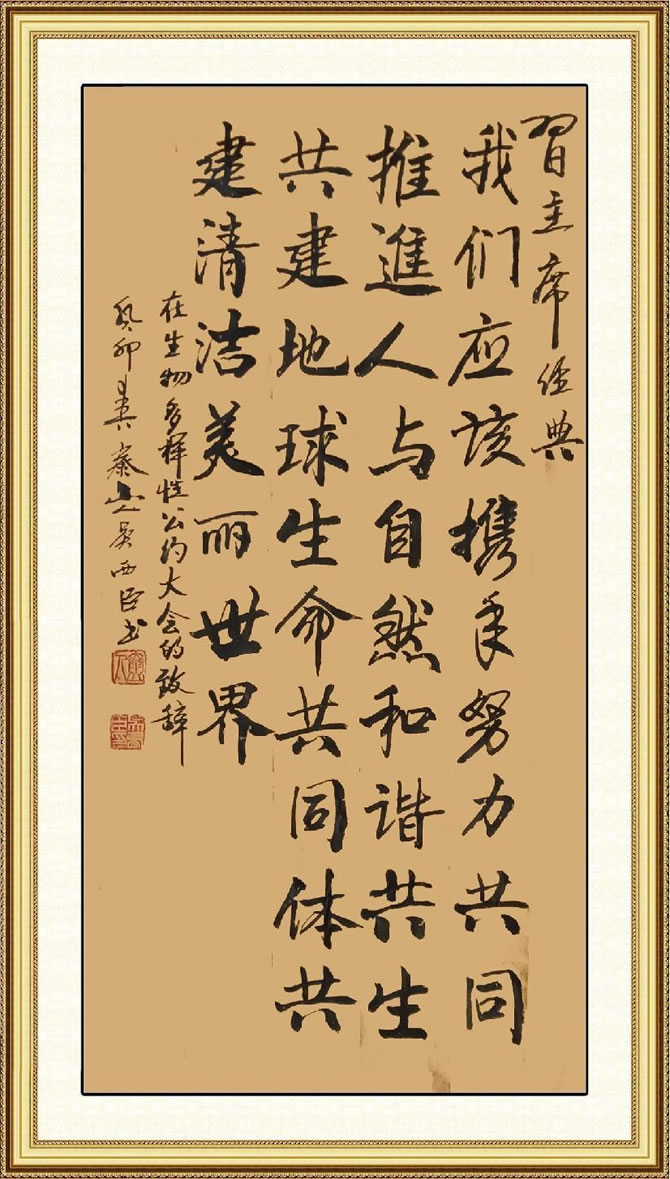 習主席经典
我们应该携手努力共同
推進人与自然和谐共生
共建地球生命共同体共
建清洁美丽世界
在生物多样性公约大会的致辞
癸卯春秦山吴西臣书